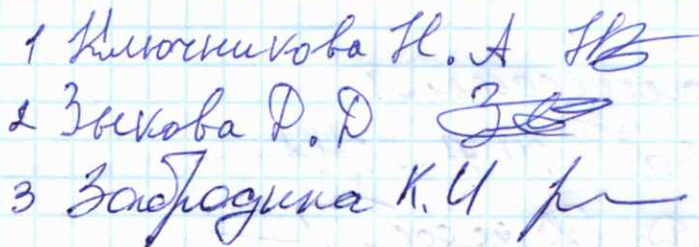 1 Ключникова Н. А
2 Зыкова Д. Д
3 Забродина К. И